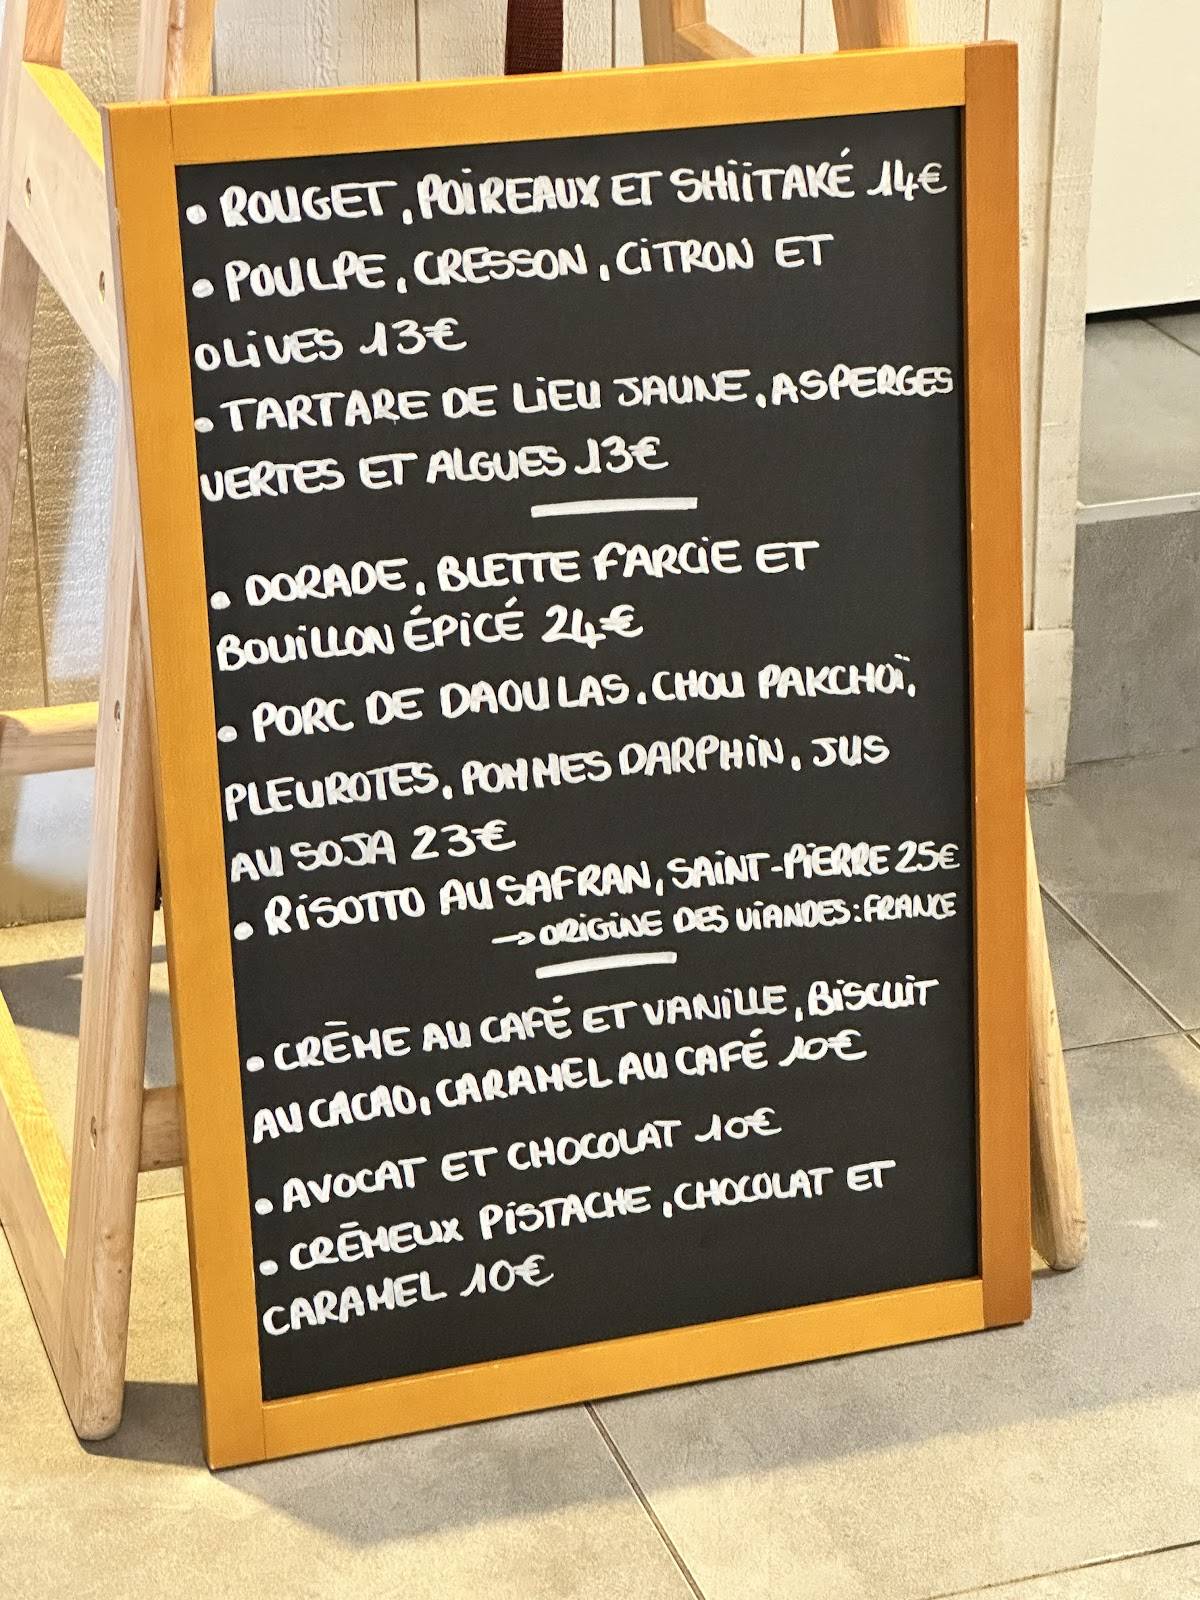 • ROUGET, POIREAUX ET SHIITAKÉ 14€
• POULPE, CRESSON, CITRON ET
OLIVES 13€
• TARTARE DE LIEU JAUNE, ASPERGES
VERTES ET ALGUES 13€
• DORADE, BLETTE FARCIE ET
BOUILLON ÉPICÉ 24€
• PORC DE DAOULAS, CHOU PAKCHOÏ,
PLEUROTES, POMMES DARPHIN, JUS
AU SOJA 23€
• RISOTTO AU SAFRAN, SAINT-PIERRE 25€
→ ORIGINE DES VIANDES: FRANCE
• CRÈME AU CAFÉ ET VANILLE, BISCUIT
AU CACAO, CARAMEL AU CAFÉ 10€
• AVOCAT ET CHOCOLAT 10€
• CRÉMEUX PISTACHE, CHOCOLAT ET
CARAMEL 10€